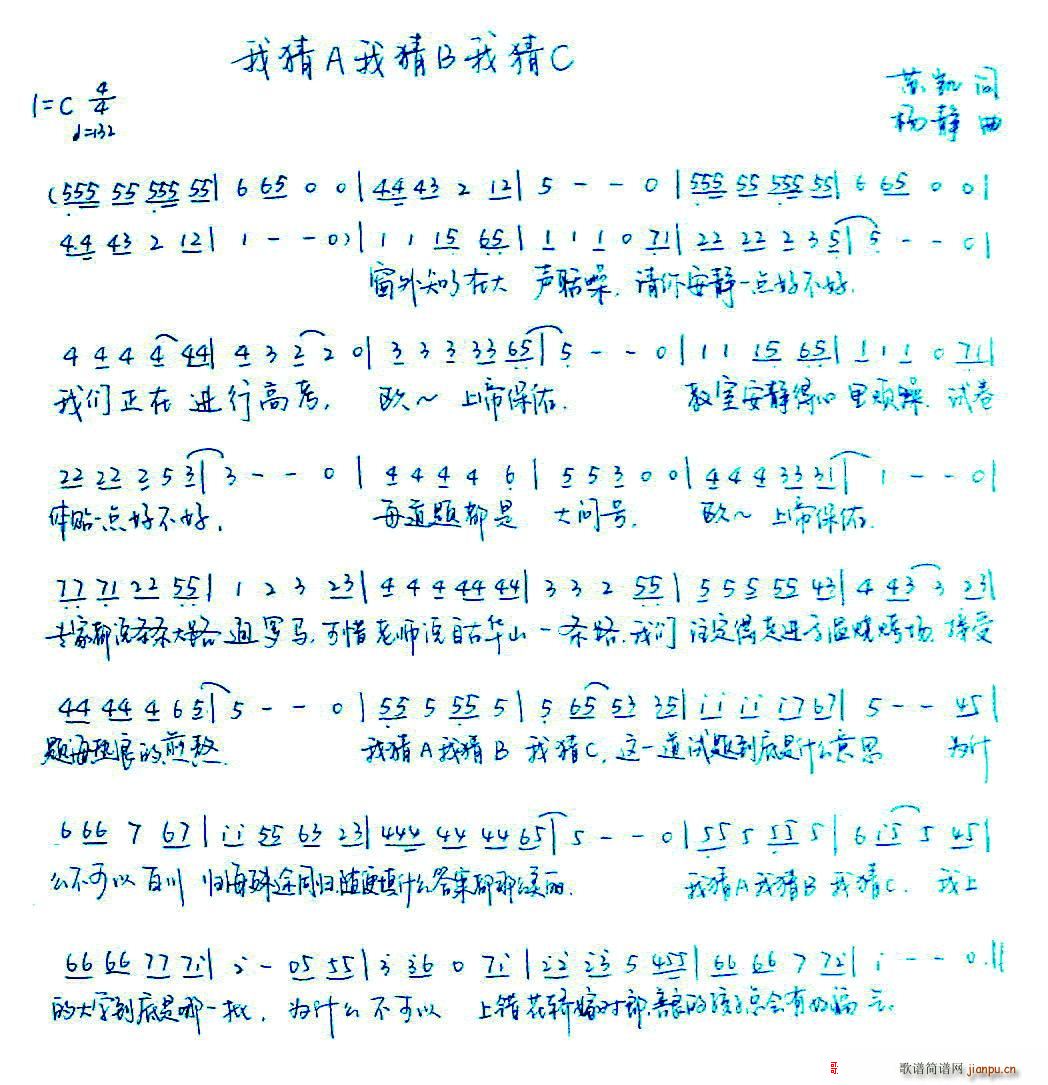 我猜A我猜B我猜C
1=C 4/4
♩=132
苏凯 词
杨静 曲
(555 55 555 55| 6 65 0 0| 44 43 2 12| 5 - - 0 |555 55 555 55| 6 65 0 0|
44 43 2 12| 1 - - 0)| 1 1 15 65| 1 1 1 0 71| 22 22 2 3 5| 5 - - 0|
窗外知了在大 声聒噪, 请你安静一点好不好.
4 4 4 4 44| 4 3 2 2 0| 3 3 3 33 65| 5 - - 0| 1 1 15 65| 1 1 1 0 71|
我们正在 进行高考, 欧~ 上帝保佑. 教室安静得心里烦躁. 试卷
22 22 2 5 3| 3 - - 0 | 4 4 4 4 6 | 5 5 3 0 0| 4 4 4 33 31| 1 - - 0|
体贴一点好不好, 每道题都是 大问号, 欧~ 上帝保佑.
77 71 22 55| 1 2 3 23| 4 4 4 44 44| 3 3 2 55| 5 5 5 55 43| 4 43 3 23|
专家都说条条大路 通罗马,可惜老师说自古华山一条路.我们 注定得走进高温烧烤场.接受
44 44 4 6 5| 5 - - 0 | 55 5 55 5| 5 65 53 35| i i i i7 67| 5 - - 45|
题海热浪的煎熬. 我猜A我猜B 我猜C,这一道试题到底是什么意思 为什
6 66 7 67| i i 55 63 23| 444 44 44 65| 5 - - 0 | 55 5 55 5| 6 i5 5 45|
么不可以百川 归海殊途同归,随便填什么答案都那么美丽. 我猜A我猜B 我猜C. 我上
66 66 77 7i| 2 - 05 55| 3 36 0 7i| 22 23 5 455| 66 66 7 72| i - - 0.||
的大学到底是哪一批, 为什么不可以 上错花轿嫁对郎,善良的孩子总会有好福气.
歌谱简谱网 jianpu.cn